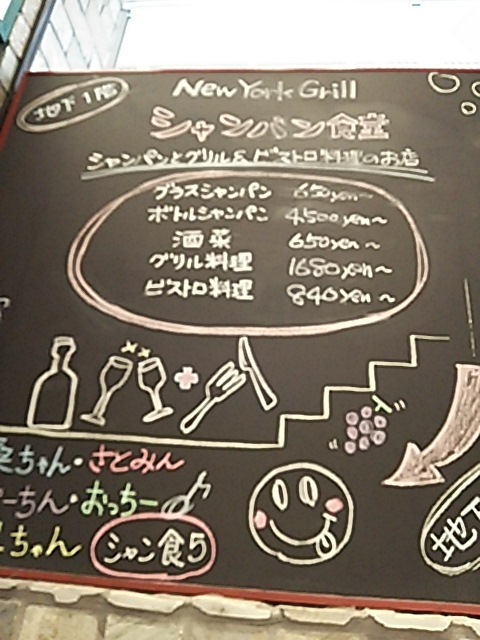 地下1階
New York Grill
シャンパン食堂
シャンパンとグリル&ビストロ料理のお店
グラスシャンパン 650yen~
ボトルシャンパン 4,500yen~
酒菜 650yen~
グリル料理 1680yen~
ビストロ料理 840yen~
ちゃん・さとみん
ーちん・おっちー
ちゃん シャン食5
地下